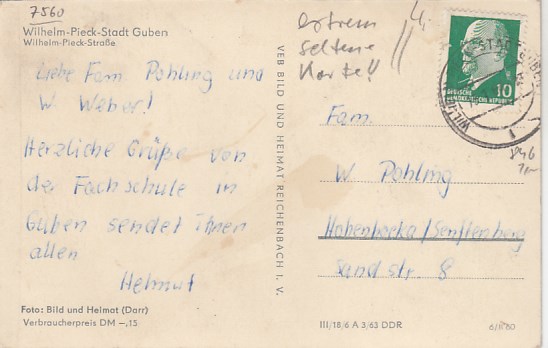 7560
Wilhelm-Pieck-Stadt Guben
Wilhelm-Pieck-Straße
Liebe Fam. Pohling und
W. Weber!
Herzliche Grüße von
der Fachschule in
Guben sendet Ihnen
allen
Helmut
Foto: Bild und Heimat (Darr)
Verbraucherpreis DM –,15
VEB BILD UND HEIMAT REICHENBACH I. V.
extrem
seltene
Karte!!
10
DEUTSCHE
DEMOKRATISCHE REPUBLIK
Fam.
W Pohling
Hohenbocka/Senftenberg
Sandstr. 8
III/18/6 A 3/63 DDR